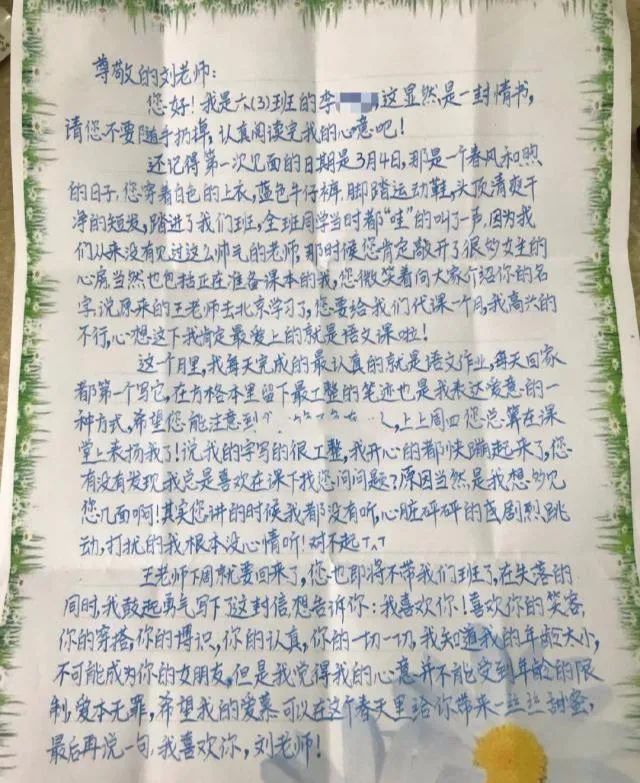 尊敬的刘老师:
您好!我是六(3)班的李,这显然是一封情书,
请您不要随手扔掉,认真阅读完我的心意吧!
还记得第一次见面的日期是3月4日,那是一个春风和煦
的日子,您穿着白色的上衣,蓝色牛仔裤,脚踏运动鞋,头顶清爽干
净的短发,踏进了我们班,全班同学当时都“哇”的叫了一声,因为我
们从来没有见过这么帅气的老师,那时候您肯定敲开了很多女生的
心房当然也包括正在准备课本的我,您微笑着向大家介绍你的名
字,说原来的王老师去北京学习了,您要给我们代课一个月,我高兴的
不行,心想这下我肯定最爱上的就是语文课啦!
这个月里,我每天完成的最认真的就是语文作业,每天回家
都第一个写它,在方格本里留下最工整的笔迹也是我表达爱意的一
种方式,希望您能注意到,上上周四您总算在课
堂上表扬我了!说我的字写的很工整,我开心的都快蹦起来了,您
有没有发现我总是喜欢在课下找您问问题?原因当然是我想多见
您几面啊!其实您讲的时候我都没有听,心脏砰砰的剧烈跳
动,打扰的我根本没心情听!对不起T^T
王老师下周就要回来了,您也即将不带我们班了,在失落的
同时,我鼓起勇气写下了这封信想告诉你:我喜欢你!喜欢你的笑容,
你的穿搭,你的博识,你的认真,你的一切一切,我知道我的年龄太小,
不可能成为你的女朋友,但是我觉得我的心意并不能受到年龄的限
制,爱本无罪,希望我的爱慕可以在这个春天里给你带来一丝丝甜蜜,
最后再说一句,我喜欢你,刘老师!